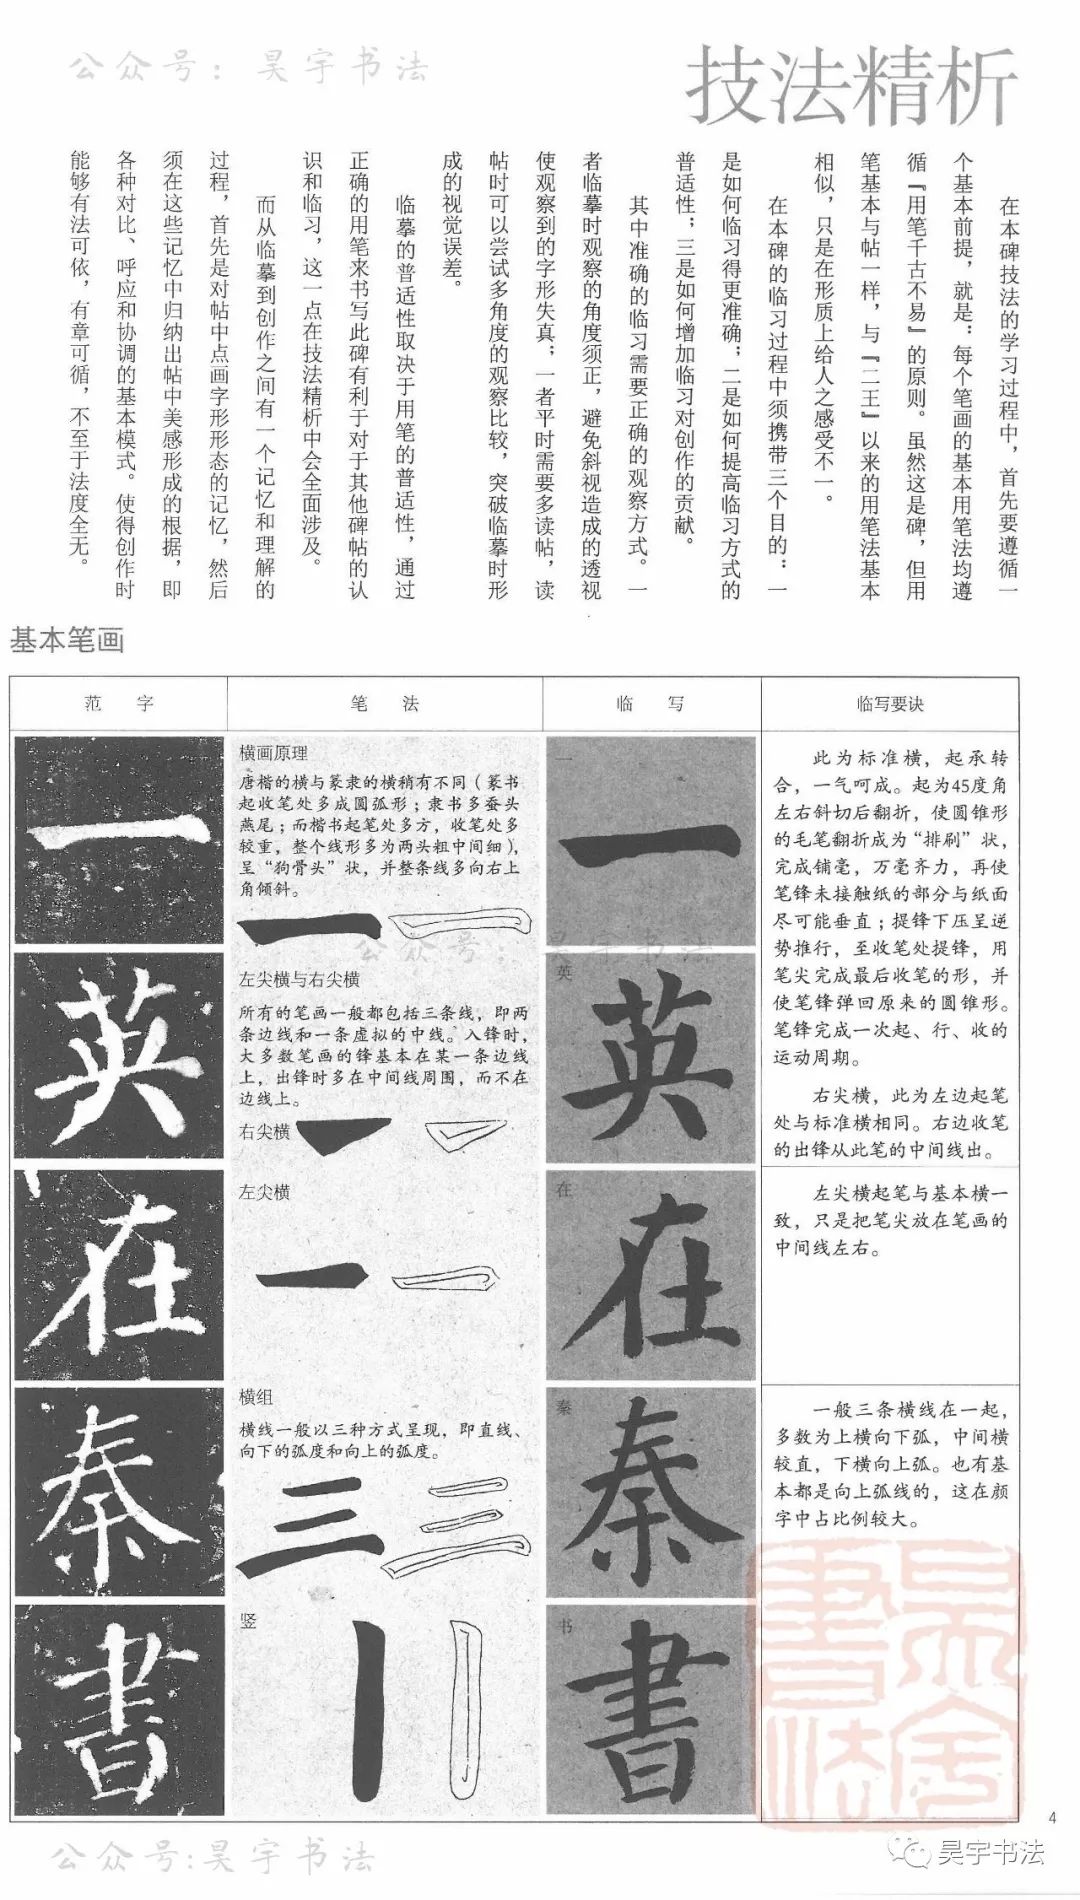 公众号：昊宇书法
技法精析
在本碑技法的学习过程中，首先要遵循一
个基本前提，就是：每个笔画的基本用笔法均遵
循『用笔千古不易』的原则。虽然这是碑，但用
笔基本与帖一样，与『二王』以来的用笔法基本
相似，只是在形质上给人之感受不一。
在本碑的临习过程中须携带三个目的：一
是如何临习得更准确；二是如何提高临习方式的
普适性；三是如何增加临习对创作的贡献。
其中准确的临习需要正确的观察方式。一
者临摹时观察的角度须正，避免斜视造成的透视
使观察到的字形失真；一者平时需要多读帖，读
帖时可以尝试多角度的观察比较，突破临摹时形
成的视觉误差。
临摹的普适性取决于用笔的普适性，通过
正确的用笔来书写此碑有利于对于其他碑帖的认
识和临习，这一点在技法精析中会全面涉及。
而从临摹到创作之间有一个记忆和理解的
过程，首先是对帖中点画字形形态的记忆，然后
须在这些记忆中归纳出帖中美感形成的根据，即
各种对比、呼应和协调的基本模式。使得创作时
能够有法可依，有章可循，不至于法度全无。
基本笔画
范 字
笔 法
临 写
临写要诀
一
横画原理
唐楷的横与篆隶的横稍有不同（篆书
起收笔处多成圆弧形；隶书多蚕头
燕尾；而楷书起笔处多方，收笔处多
较重，整个线形多为两头粗中间细），
呈“狗骨头”状，并整条线多向右上
角倾斜。
一
一
此为标准横，起承转
合，一气呵成。起为45度角
左右斜切后翻折，使圆锥形
的毛笔翻折成为“排刷”状，
完成铺毫，万毫齐力，再使
笔锋未接触纸的部分与纸面
尽可能垂直；提锋下压呈逆
势推行，至收笔处提锋，用
笔尖完成最后收笔的形，并
使笔锋弹回原来的圆锥形。
笔锋完成一次起、行、收的
运动周期。
公众号：昊宇书法
英
左尖横与右尖横
所有的笔画一般都包括三条线，即两
条边线和一条虚拟的中线。入锋时，
大多数笔画的锋基本在某一条边线
上，出锋时多在中间线周围，而不在
边线上。
右尖横
英
英
右尖横，此为左边起笔
处与标准横相同。右边收笔
的出锋从此笔的中间线出。
在
左尖横
在
在
左尖横起笔与基本横一
致，只是把笔尖放在笔画的
中间线左右。
秦
横组
横线一般以三种方式呈现，即直线、
向下的弧度和向上的弧度。
秦
秦
一般三条横线在一起，
多数为上横向下弧，中间横
较直，下横向上弧。也有基
本都是向上弧线的，这在颜
字中占比例较大。
書
竖
书
書
昊宇書法
4
公众号:昊宇书法
昊宇书法